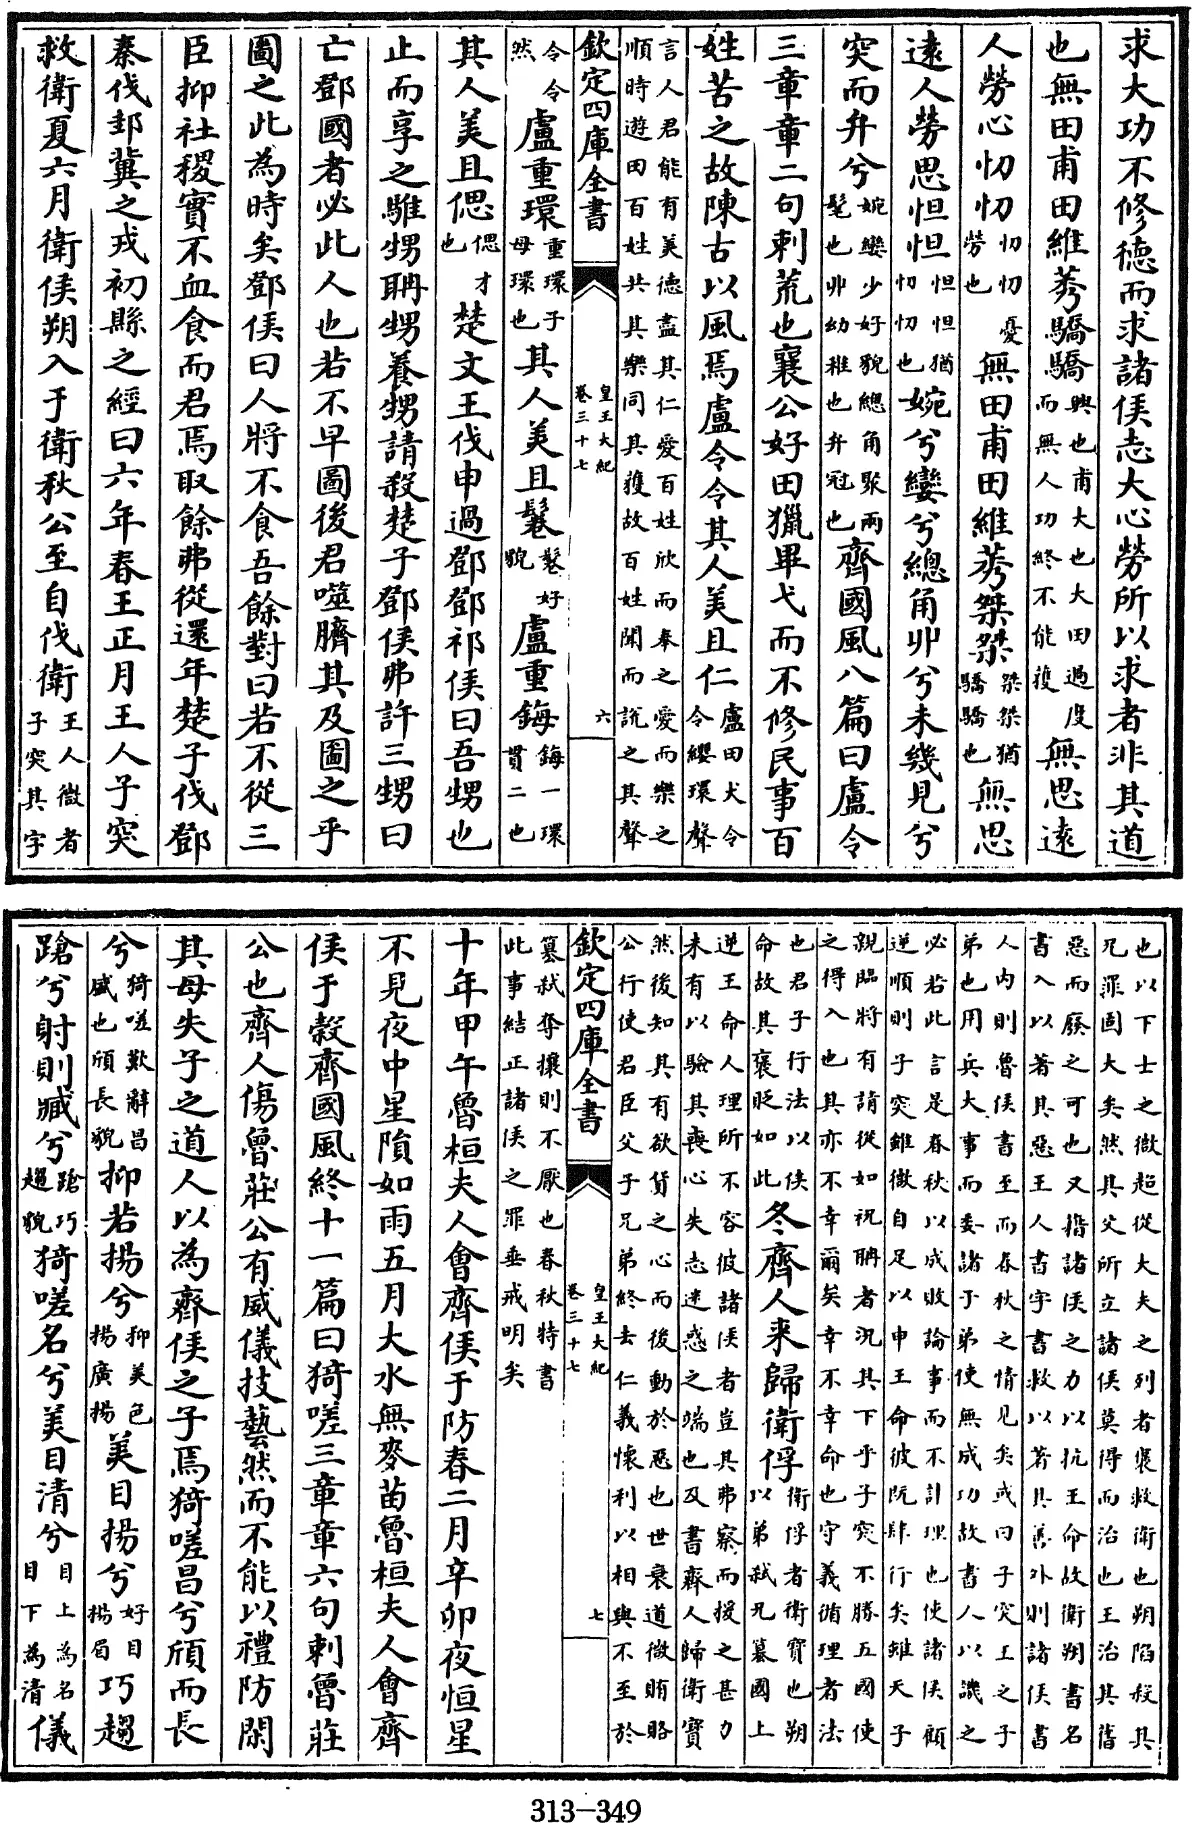 求大功不修徳而求諸侯志大心勞所以求者非其道
也無田甫田維莠驕驕興也甫大也大田過度而無人功終不能獲無思逺
人勞心忉忉忉忉憂勞也無田甫田維莠桀桀桀桀猶驕驕也無思
逺人勞思怛怛怛怛猶忉忉也婉兮孌兮總角丱兮未幾見兮
突而弁兮婉孌少好貌總角聚兩髦也丱幼稚也弁冠也齊國風八篇曰盧令
三章章二句刺荒也襄公好田獵畢弋而不修民事百
姓苦之故陳古以風焉盧令令其人美且仁盧田犬令令纓環聲
言人君能有美徳盡其仁愛百姓欣而奉之愛而樂之
順時遊田百姓共其樂同其獲故百姓聞而説之其聲
欽定四庫全書
皇王大紀
卷三十七
六
令令然盧重環重環子母環也其人美且鬈鬈好貌盧重鋂鋂一環貫二也
其人美且偲偲才也楚文王伐申過鄧鄧祁侯曰吾甥也
止而享之騅甥聃甥養甥請殺楚子鄧侯弗許三甥曰
亡鄧國者必此人也若不早圖後君噬臍其及圖之乎
圖之此為時矣鄧侯曰人將不食吾餘對曰若不從三
臣抑社稷實不血食而君焉取餘弗從還年楚子伐鄧
秦伐邽冀之戎初縣之經曰六年春王正月王人子突
救衛夏六月衛侯朔入于衛秋公至自伐衛王人微者子突其字
也以下士之微超從大夫之列者褒救衛也朔陷殺其
兄罪固大矣然其父所立諸侯莫得而治也王治其舊
惡而廢之可也又指諸侯之力以抗王命故衛朔書名
書入以著其惡王人書字書救以著其善外則諸侯書
人内則魯侯書至而春秋之情見矣或曰子突王之子
弟也用兵大事而委諸于弟使無成功故書人以譏之
必若此言是春秋以成敗論事而不計理也使諸侯顧
逆順則子突雖微自足以申王命彼既肆行矣雖天子
親臨將有請從如祝聃者况其下乎子突不勝五國使
之得入也其亦不幸爾矣幸不幸命也守義循理者法
也君子行法以俟命故其褒貶如此冬齊人来歸衛俘衛俘者衛寳也朔以弟弑兄簒國上
逆王命人理所不容彼諸侯者豈其弗察而授之甚力
未有以驗其喪心失志迷惑之端也及書齊人歸衛寳
然後知其有欲貨之心而後動於惡也世衰道微賄賂
公行使君臣父子兄弟終去仁義懐利以相與不至於
欽定四庫全書
皇王大紀
卷三十七
七
簒弑奪攘則不厭也春秋特書
此事結正諸侯之罪垂戒明矣
十年甲午魯桓夫人會齊侯于防春二月辛卯夜恒星
不見夜中星隕如雨五月大水無麥苗魯桓夫人會齊
侯于穀齊國風終十一篇曰猗嗟三章章六句刺魯莊
公也齊人傷魯莊公有威儀技藝然而不能以禮防閑
其母失子之道人以為齊侯之子焉猗嗟昌兮頎而長
兮猗嗟歎辭昌盛也頎長貌抑若揚兮抑美色揚廣揚美目揚兮好目揚眉巧趨
蹌兮射則臧兮蹌巧趨貌猗嗟名兮美目清兮目上為名目下為清儀
313-349